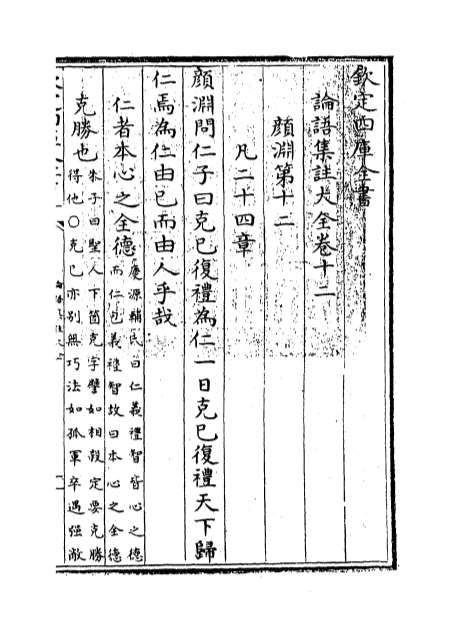 欽定四庫全書
論語集註大全卷十二
顔淵第十二
凡二十四章
顔淵問仁子曰克已復禮為仁一日克已復禮天下歸
仁焉為仁由已而由人乎哉
仁者本心之全德慶源輔氏曰仁義禮智皆心之德
而仁包義禮智故曰本心之全德
克勝也朱子曰聖人下箇克字譬如相殺定要克勝
得他○克已亦别無巧法如孤軍卒遇强敵